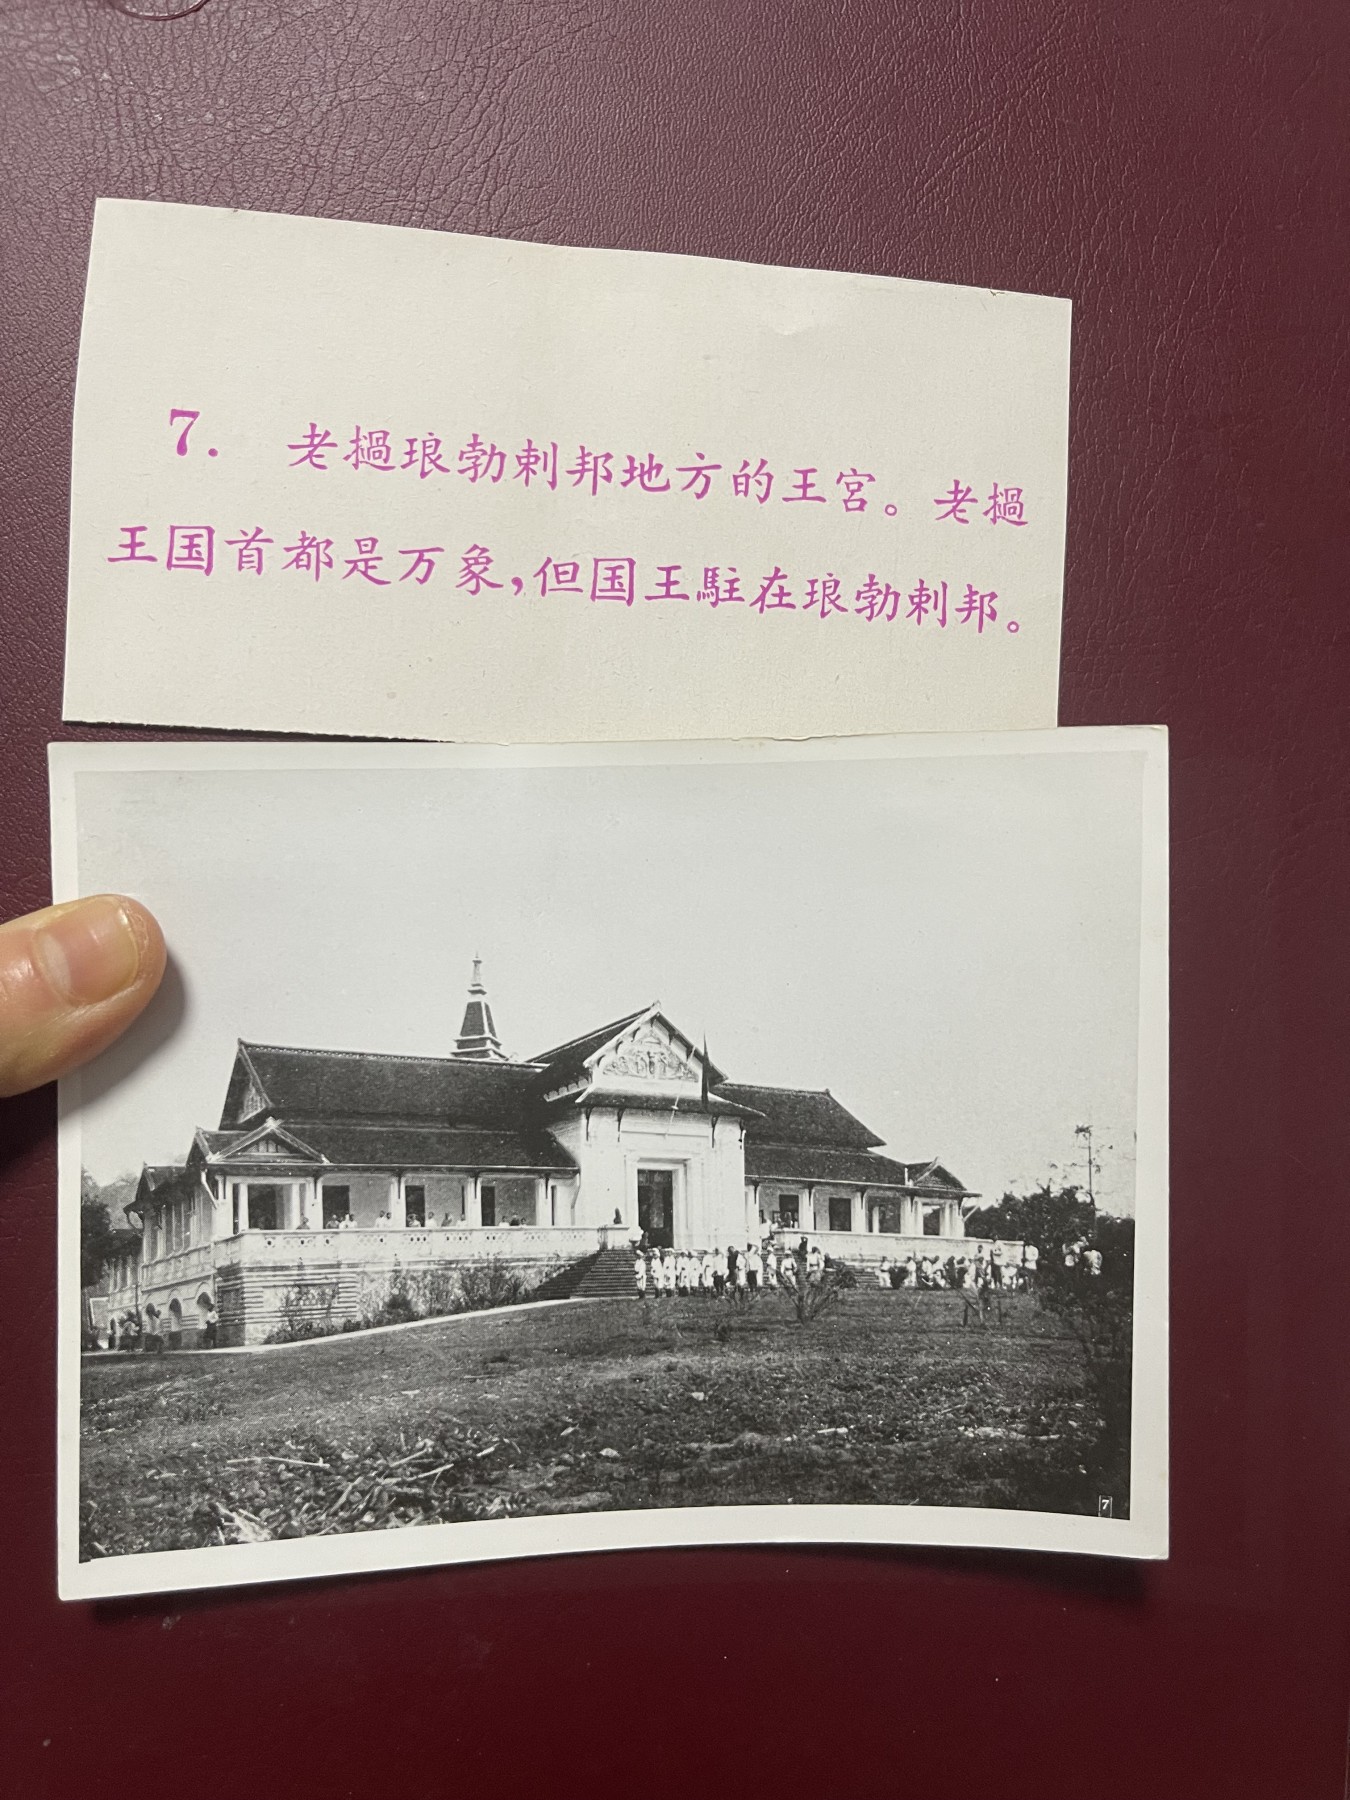 7. 老撾琅勃剌邦地方的王宮。老撾
王国首都是万象,但国王駐在琅勃剌邦。
7